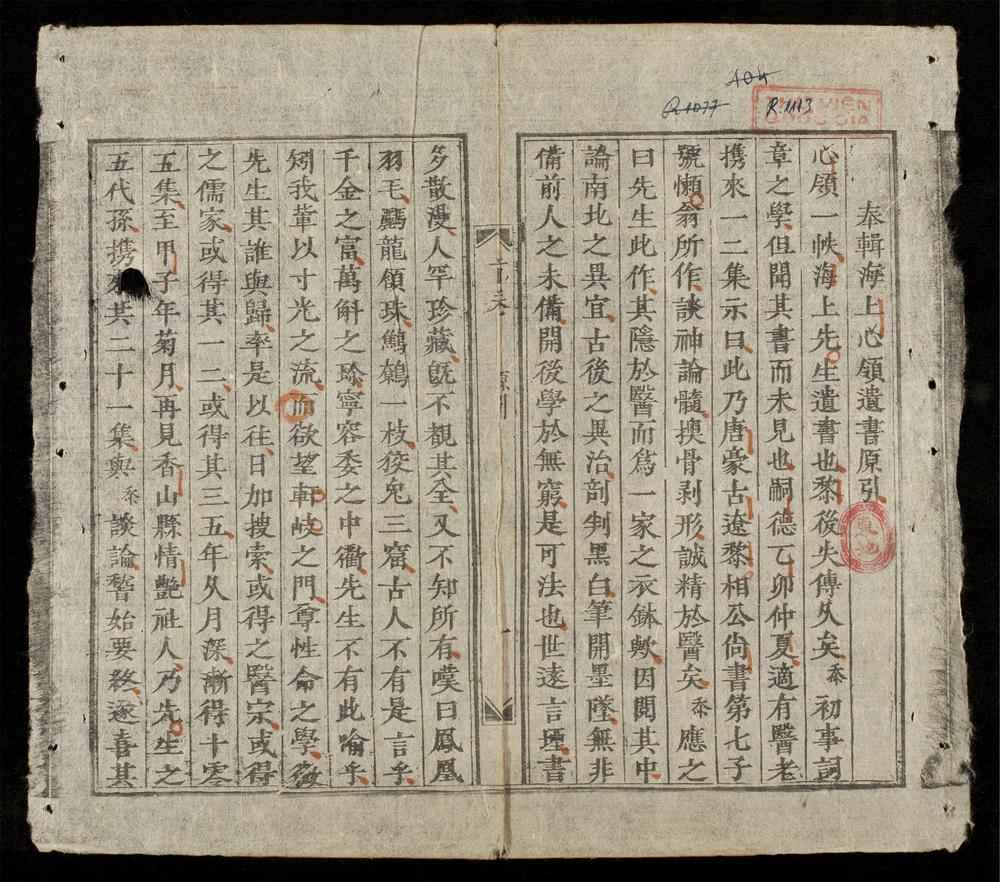 104
R.1077
R.1113
THƯ VIỆN
QUỐC GIA
奉輯海上心領遺書原引
心領一帙海上先生遺書也黎後失傳久矣 忝 初事詞
章之學但聞其書而未見也嗣德乙卯仲夏適有醫老
携來一二集示曰此乃唐豪古遼黎相公尙書第七子
號懶翁所作談神論髓摸骨剥形誠精於醫矣 忝 應之
曰先生此作其隱於醫而爲一家之衣鉢歟因閱其中
論南北之異宜古後之異治剖判黑白筆開墨墜無非
備前人之未備開後學於無窮是可法也世遠言堙書
首卷
原引
一
多散漫人罕珍藏旣不覩其全又不知所有嘆曰鳳凰
羽毛驪龍頷珠鷦鷯一枝狡兔三窟古人不有是言乎
千金之富萬斛之珍寧容委之中衢先生不有此喻乎
矧我軰以寸光之流而欲望軒岐之門尊性命之學微
先生其誰與歸率是以往日加搜索或得之醫宗或得
之儒家或得其一二或得其三五年久月深漸得十零
五集至甲子年菊月再見香山縣情艷社人乃先生之
五代孫携來其二十一集與 忝 談論諬始要終遂喜其